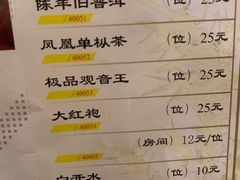 陈年旧普洱 (位) 25元
40051
凤凰单枞茶 (位) 25元
40052
极品观音王 (位) 25元
40053
大红袍 (位) 25元
40054
(房间) 12元/位
40005
白开水 (位) 10元